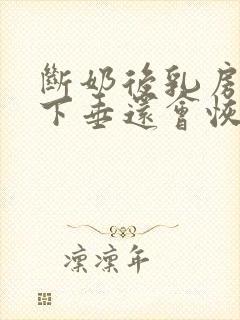 斷奶後乳房
下垂還會恢
凜凜年